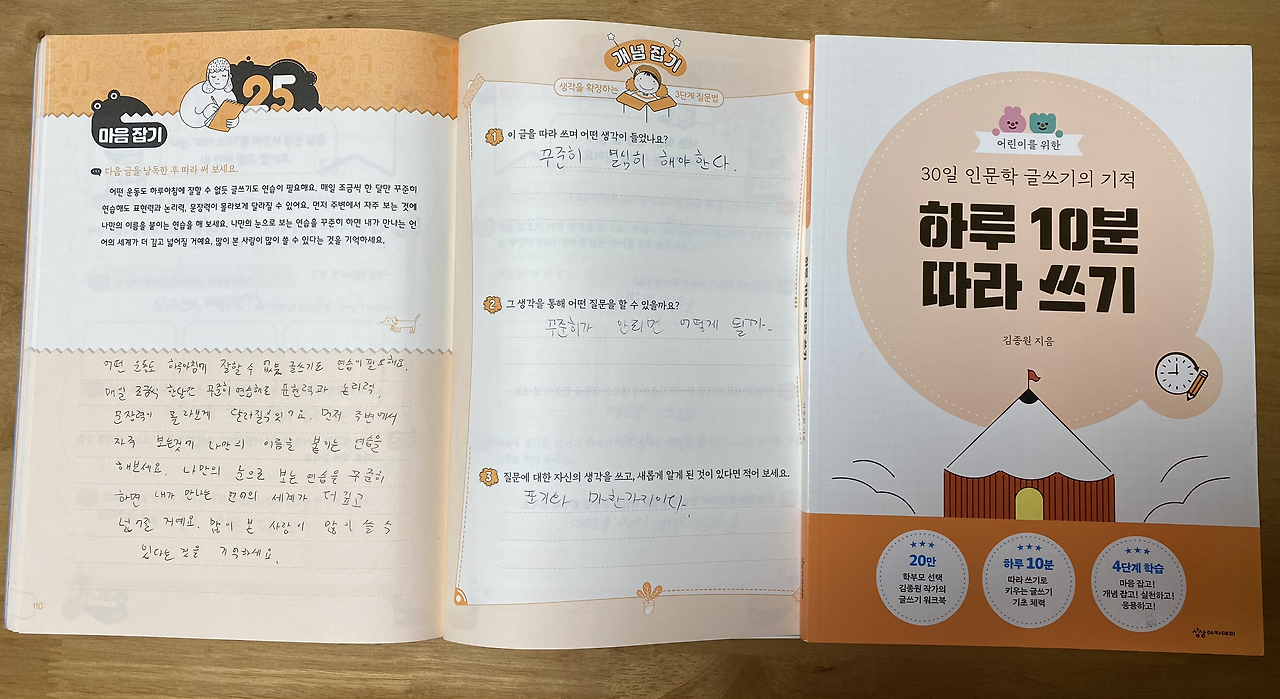 25
마음 잡기
다음 글을 낭독한 후 따라 써 보세요.
어떤 운동도 하루아침에 잘할 수 없듯 글쓰기도 연습이 필요해요. 매일 조금씩 한 달만 꾸준히
연습해도 표현력과 논리력, 문장력이 몰라보게 달라질 수 있어요. 먼저 주변에서 자주 보는 것에
나만의 이름을 붙이는 연습을 해 보세요. 나만의 눈으로 보는 연습을 꾸준히 하면 내가 만나는 언
어의 세계가 더 깊고 넓어질 거예요. 많이 본 사람이 많이 쓸 수 있다는 것을 기억하세요.
어떤 운동도 하루아침에 잘할 수 없듯 글쓰기도 연습이 필요해요.
매일 조금씩 한달만 꾸준히 연습해도 표현력과 논리력,
문장력이 몰라보게 달라질수있어요. 먼저 주변에서
자주 보는것에 나만의 이름을 붙이는 연습을
해보세요. 나만의 눈으로 보는 연습을 꾸준히
하면 내가 만나는 언어의 세계가 더 깊고
거예요. 많이 본 사람이 많이 쓸 수
있다는 것을 기억하세요.
110
개념 잡기
생각을 확장하는 3단계 질문법
1 이 글을 따라 쓰며 어떤 생각이 들었나요?
꾸준히 열심히 해야한다.
2 그 생각을 통해 어떤 질문을 할 수 있을까요?
꾸준히가 안되면 어떻게 될까.
3 질문에 대한 자신의 생각을 쓰고, 새롭게 알게 된 것이 있다면 적어 보세요.
포기와 마찬가지이다.
어린이를 위한
30일 인문학 글쓰기의 기적
하루 10분
따라 쓰기
김종원 지음
20만
학부모 선택
김종원 작가의
글쓰기 워크북
하루 10분
따라 쓰기로
키우는 글쓰기
기초 체력
4단계 학습
마음 잡고!
개념 잡고! 실천하고!
응용하고!
상상아카데미